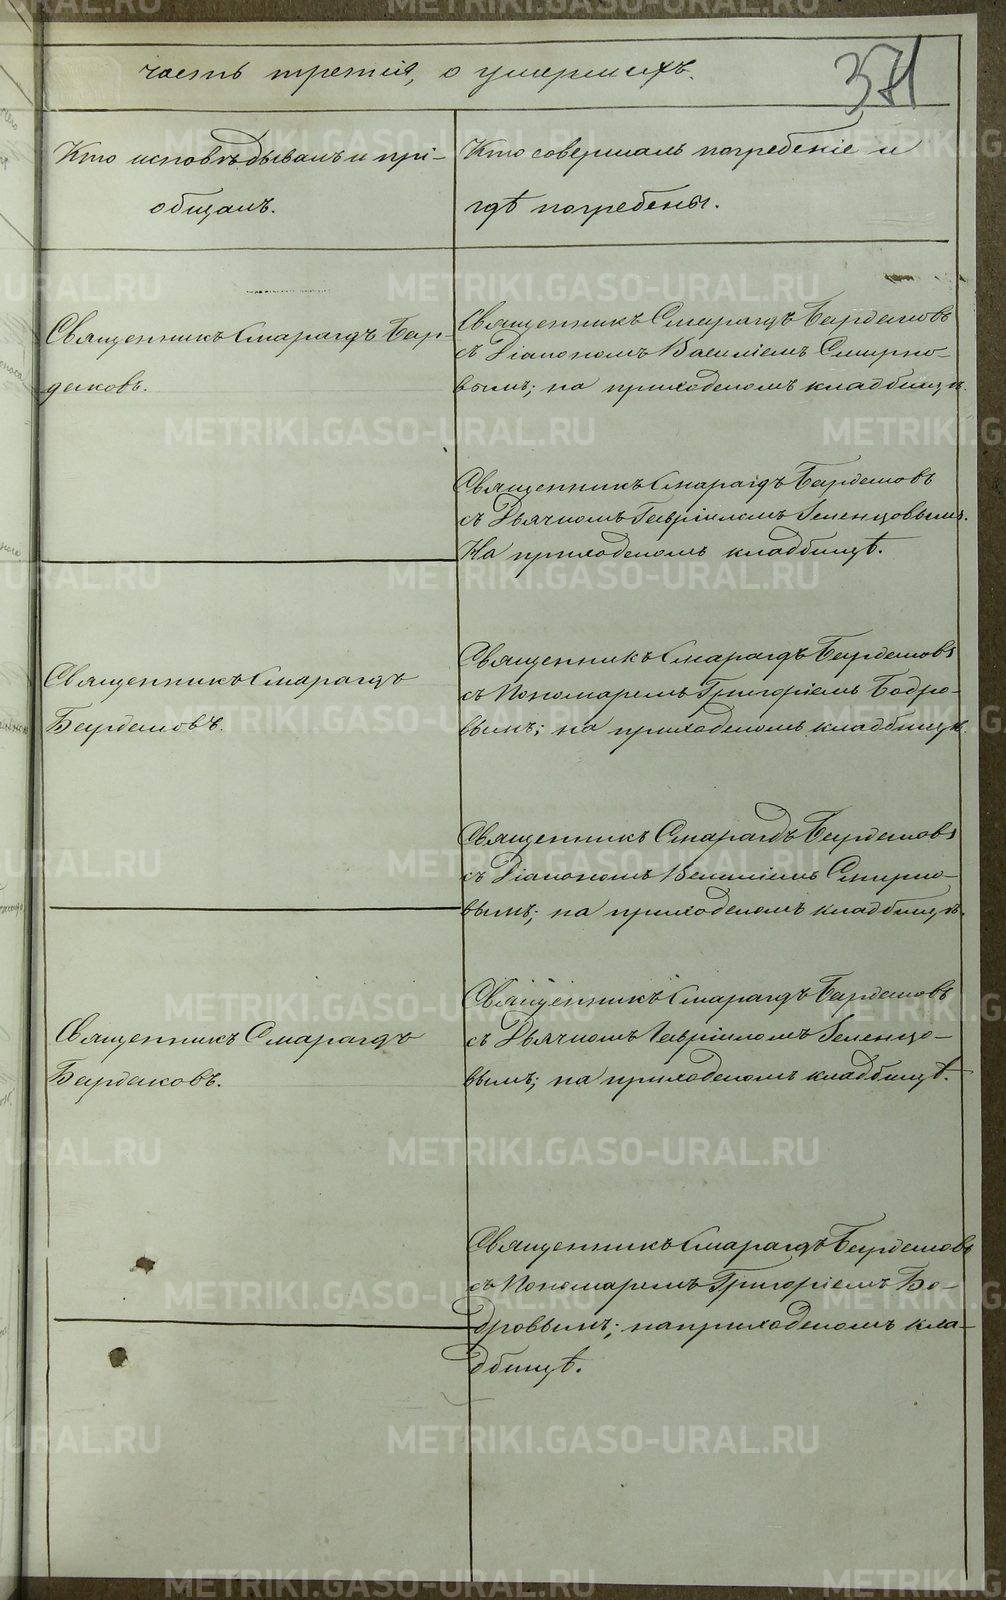 часть третія, о умершихъ.
371
Кто исповѣдывалъ и прі-
общалъ.
Кто совершалъ погребеніе и
гдѣ погребены.
Священникъ Смарагдъ Бар
даковъ.
Священникъ Смарагдъ Бардаковъ
съ Діакономъ Василіемъ Смирно-
вымъ; на приходскомъ кладбищѣ.
Священникъ Смарагдъ Бардаковъ
съ Дьячкомъ Гавріиломъ Зеленцовымъ.
На приходскомъ кладбищѣ.
Священникъ Смарагдъ
Бардаковъ.
Священникъ Смарагдъ Бардаковъ
съ Пономаремъ Григоріемъ Бодро-
вымъ; на приходскомъ кладбищѣ.
Священникъ Смарагдъ Бардаковъ
съ Діакономъ Василіемъ Смирно-
вымъ; на приходскомъ кладбищѣ.
Священникъ Смарагдъ
Бардаковъ.
Священникъ Смарагдъ Бардаковъ
съ Дьячкомъ Гавріиломъ Зеленцо-
вымъ; на приходскомъ кладбищѣ.
Священникъ Смарагдъ Бардаковъ
съ Пономаремъ Григоріемъ Бо-
дровымъ; на приходскомъ кла-
дбищѣ.
METRIKI.GASO-URAL.RU